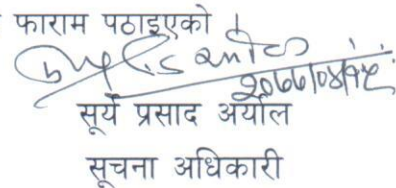 फाराम पठाइएको ।
२०७७/०४/१५
सूर्य प्रसाद अर्याल
सूचना अधिकारी